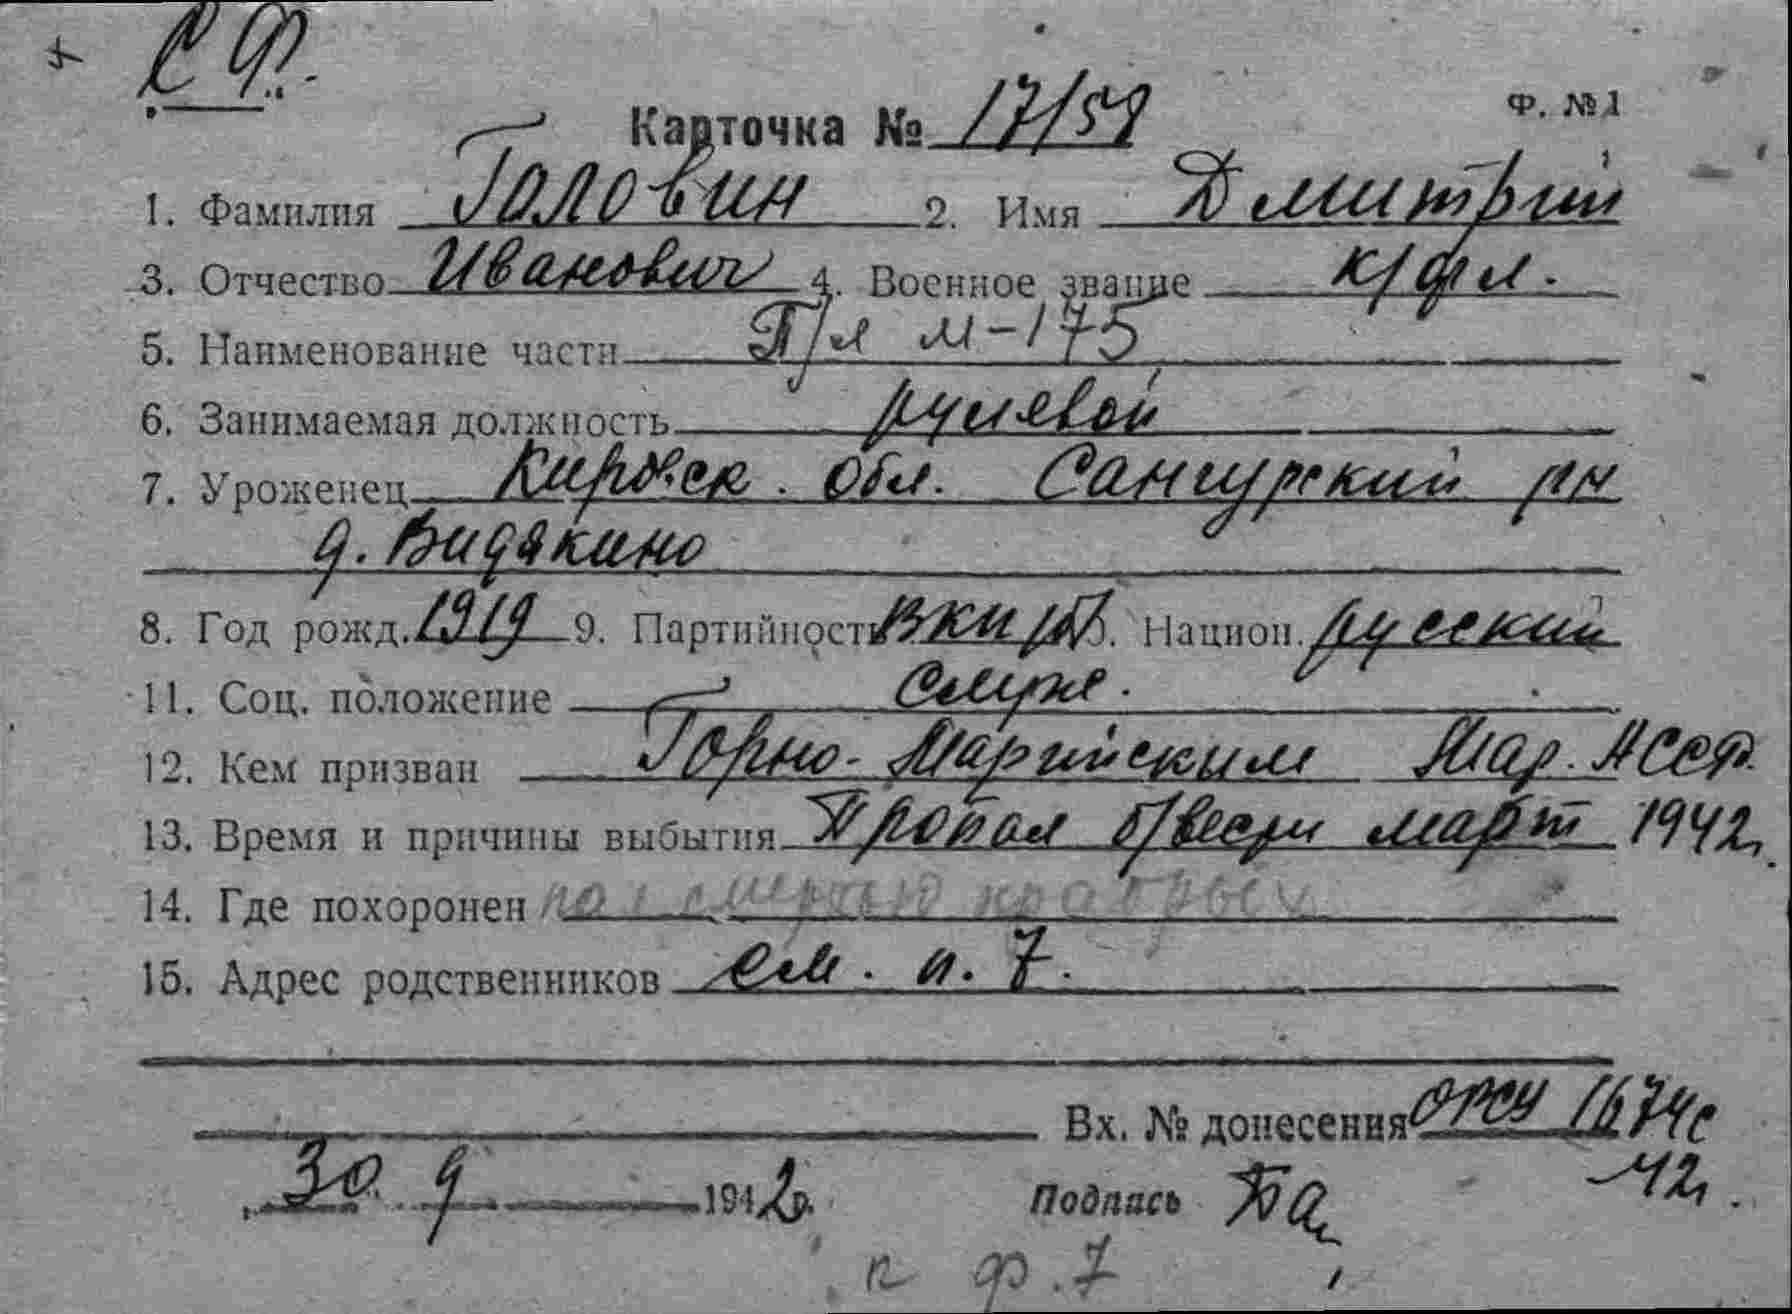 С Ф.
Ф. №1
Карточка № 17/58
1. Фамилия Головин 2. Имя Дмитрий
3. Отчество Иванович 4. Военное звание к/фл.
5. Наименование части П/л М-175
6. Занимаемая должность рулевой
7. Уроженец Кировск. обл. Сангурский рн
д. Видякино
8. Год рожд. 1919 9. Партийность ВКП(б) 10. Национ. русский
11. Соц. положение служ.
12. Кем призван Горно-Марийским Мар. АССР.
13. Время и причины выбытия Пропал б/вести март 1942г.
14. Где похоронен пал смертью храбрых
15. Адрес родственников см. п. 7.
Вх. № донесения ОРСУ 1674с
42г.
30 9 1942г. Подпись
к ф. 7